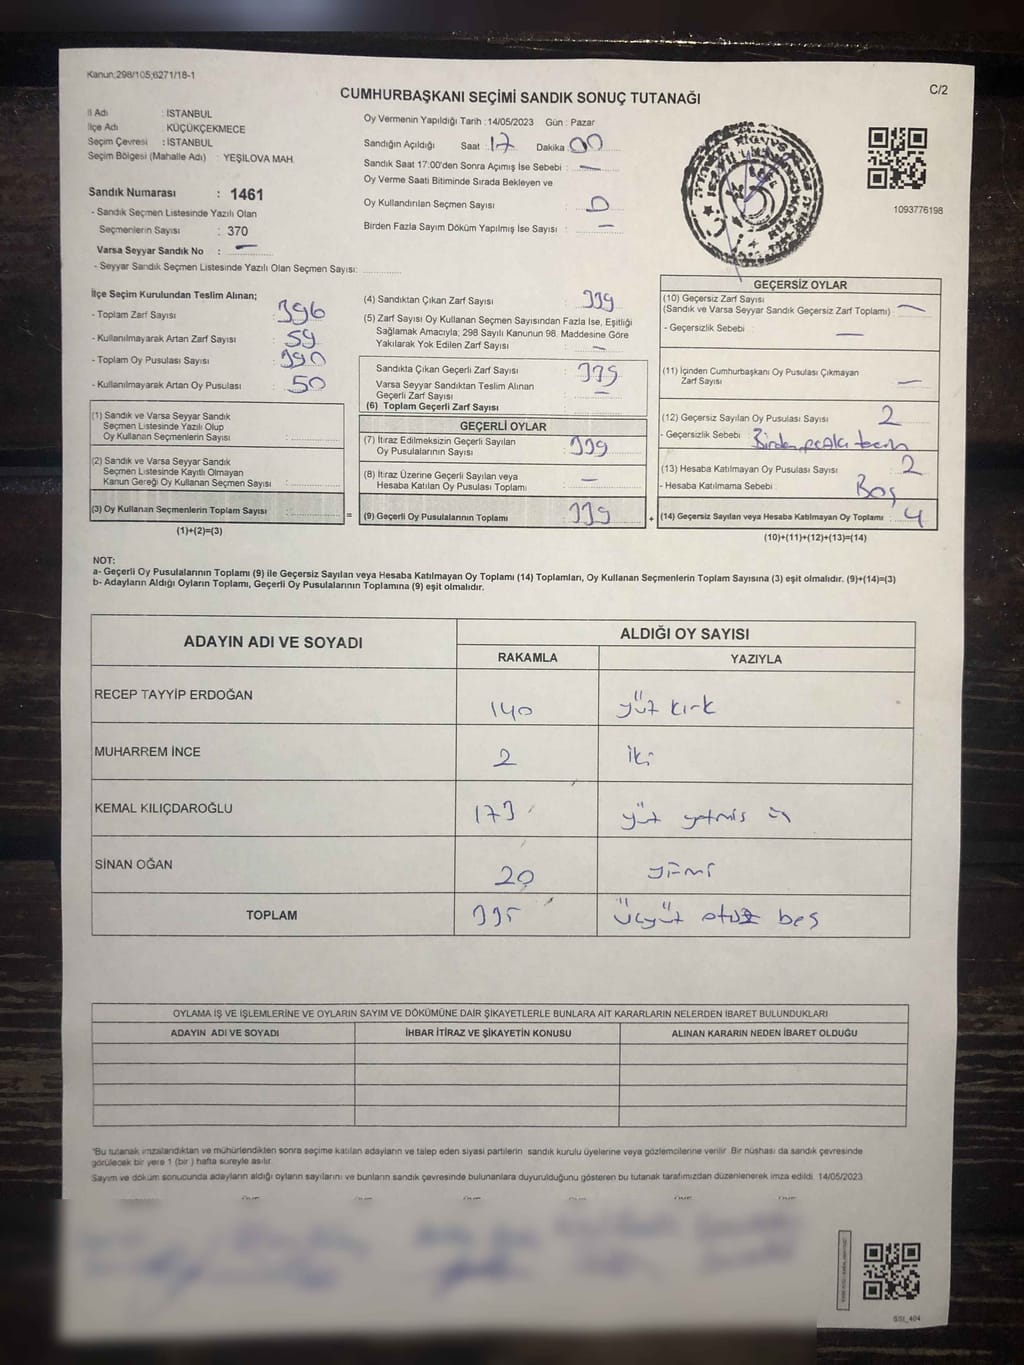 Kanun;298/105;6271/18-1
C/2
CUMHURBAŞKANI SEÇİMİ SANDIK SONUÇ TUTANAĞI
İl Adı : İSTANBUL
İlçe Adı : KÜÇÜKÇEKMECE
Seçim Çevresi : İSTANBUL
Seçim Bölgesi (Mahalle Adı) : YEŞİLOVA MAH.
Sandık Numarası : 1461
- Sandık Seçmen Listesinde Yazılı Olan
Seçmenlerin Sayısı : 370
Varsa Seyyar Sandık No : —
- Seyyar Sandık Seçmen Listesinde Yazılı Olan Seçmen Sayısı:
Oy Vermenin Yapıldığı Tarih : 14/05/2023 Gün : Pazar
Sandığın Açıldığı Saat : 17 Dakika : 00
Sandık Saat 17:00'den Sonra Açımış İse Sebebi : —
Oy Verme Saati Bitiminde Sırada Bekleyen ve
Oy Kullandırılan Seçmen Sayısı : 0
Birden Fazla Sayım Döküm Yapılmış İse Sayısı : —
1093776198
İlçe Seçim Kurulundan Teslim Alınan;
- Toplam Zarf Sayısı : 396
- Kullanılmayarak Artan Zarf Sayısı : 59
- Toplam Oy Pusulası Sayısı : 390
- Kullanılmayarak Artan Oy Pusulası : 50
(1) Sandık ve Varsa Seyyar Sandık
Seçmen Listesinde Yazılı Olup
Oy Kullanan Seçmenlerin Sayısı :
(2) Sandık ve Varsa Seyyar Sandık
Seçmen Listesinde Kayıtlı Olmayan
Kanun Gereği Oy Kullanan Seçmen Sayısı :
(3) Oy Kullanan Seçmenlerin Toplam Sayısı :
(1)+(2)=(3)
=
(4) Sandıktan Çıkan Zarf Sayısı : 339
(5) Zarf Sayısı Oy Kullanan Seçmen Sayısından Fazla İse, Eşitliği
Sağlamak Amacıyla; 298 Sayılı Kanunun 98. Maddesine Göre
Yakılarak Yok Edilen Zarf Sayısı : —
Sandıkta Çıkan Geçerli Zarf Sayısı : 339
Varsa Seyyar Sandıktan Teslim Alınan
Geçerli Zarf Sayısı : —
(6) Toplam Geçerli Zarf Sayısı :
GEÇERLİ OYLAR
(7) İtiraz Edilmeksizin Geçerli Sayılan
Oy Pusulalarının Sayısı : 339
(8) İtiraz Üzerine Geçerli Sayılan veya
Hesaba Katılan Oy Pusulası Toplamı : —
(9) Geçerli Oy Pusulalarının Toplamı : 339
+
GEÇERSİZ OYLAR
(10) Geçersiz Zarf Sayısı
(Sandık ve Varsa Seyyar Sandık Geçersiz Zarf Toplamı) : —
- Geçersizlik Sebebi : —
(11) İçinden Cumhurbaşkanı Oy Pusulası Çıkmayan
Zarf Sayısı : —
(12) Geçersiz Sayılan Oy Pusulası Sayısı : 2
- Geçersizlik Sebebi : Birden
(13) Hesaba Katılmayan Oy Pusulası Sayısı : 2
- Hesaba Katılmama Sebebi : Boş
(14) Geçersiz Sayılan veya Hesaba Katılmayan Oy Toplamı : 4
(10)+(11)+(12)+(13)=(14)
NOT:
a- Geçerli Oy Pusulalarının Toplamı (9) ile Geçersiz Sayılan veya Hesaba Katılmayan Oy Toplamı (14) Toplamları, Oy Kullanan Seçmenlerin Toplam Sayısına (3) eşit olmalıdır. (9)+(14)=(3)
b- Adayların Aldığı Oyların Toplamı, Geçerli Oy Pusulalarının Toplamına (9) eşit olmalıdır.
ADAYIN ADI VE SOYADI
ALDIĞI OY SAYISI
RAKAMLA YAZIYLA
RECEP TAYYİP ERDOĞAN 140 yüz kırk
MUHARREM İNCE 2 iki
KEMAL KILIÇDAROĞLU 173 yüz yetmiş üç
SİNAN OĞAN 20 yirmi
TOPLAM 335 üçyüz otuz beş
OYLAMA İŞ VE İŞLEMLERİNE VE OYLARIN SAYIM VE DÖKÜMÜNE DAİR ŞİKAYETLERLE BUNLARA AİT KARARLARIN NELERDEN İBARET BULUNDUKLARI
ADAYIN ADI VE SOYADI İHBAR İTİRAZ VE ŞİKAYETİN KONUSU ALINAN KARARIN NEDEN İBARET OLDUĞU
*Bu tutanak imzalandıktan ve mühürlendikten sonra seçime katılan adayların ve talep eden siyasi partilerin sandık kurulu üyelerine veya gözlemcilerine verilir. Bir nüshası da sandık çevresinde
görülecek bir yere 1 (bir ) hafta süreyle asılır.
Sayım ve döküm sonucunda adayların aldığı oyların sayılarını ve bunların sandık çevresinde bulunanlara duyurulduğunu gösteren bu tutanak tarafımızdan düzenlenerek imza edildi. 14/05/2023
SSI_404